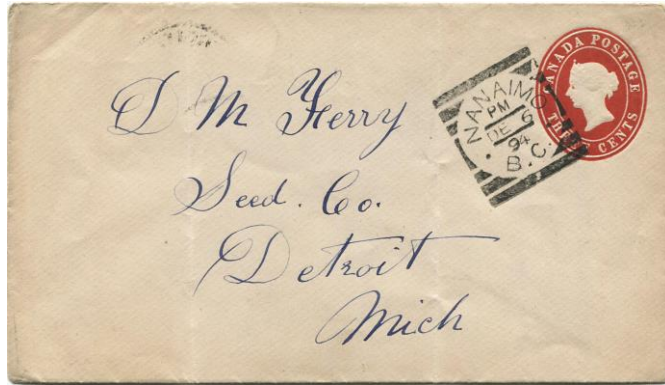 CANADA POSTAGE
THREE CENTS
NANAIMO
PM
DE 6
94
B.C.
D M Ferry
Seed. Co.
Detroit
Mich